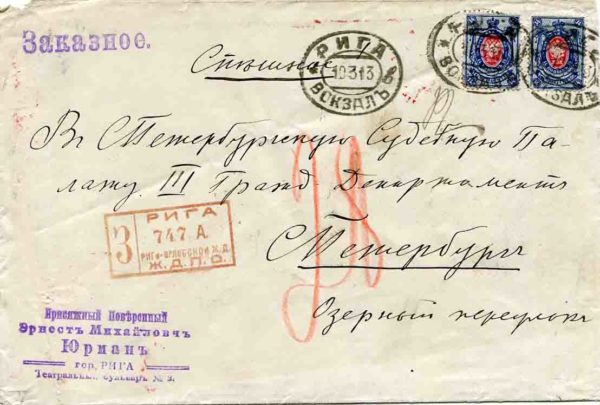 Заказное.
Спѣшное
РИГА
19313
ВОКЗАЛЪ
ВОКЗАЛЪ
Въ С Петербургскую Судебную Па-
лату III Гражд Департаментъ
С Петербургъ
Озерный переулокъ
З
РИГА
747. А.
РИГО-ОРЛОВСКОЙ Ж.Д.
Ж.Д.П.О.
Присяжный Повѣренный
Эрнестъ Михайловичъ
Юрманъ
гор. РИГА
Театральный бульваръ № 3.